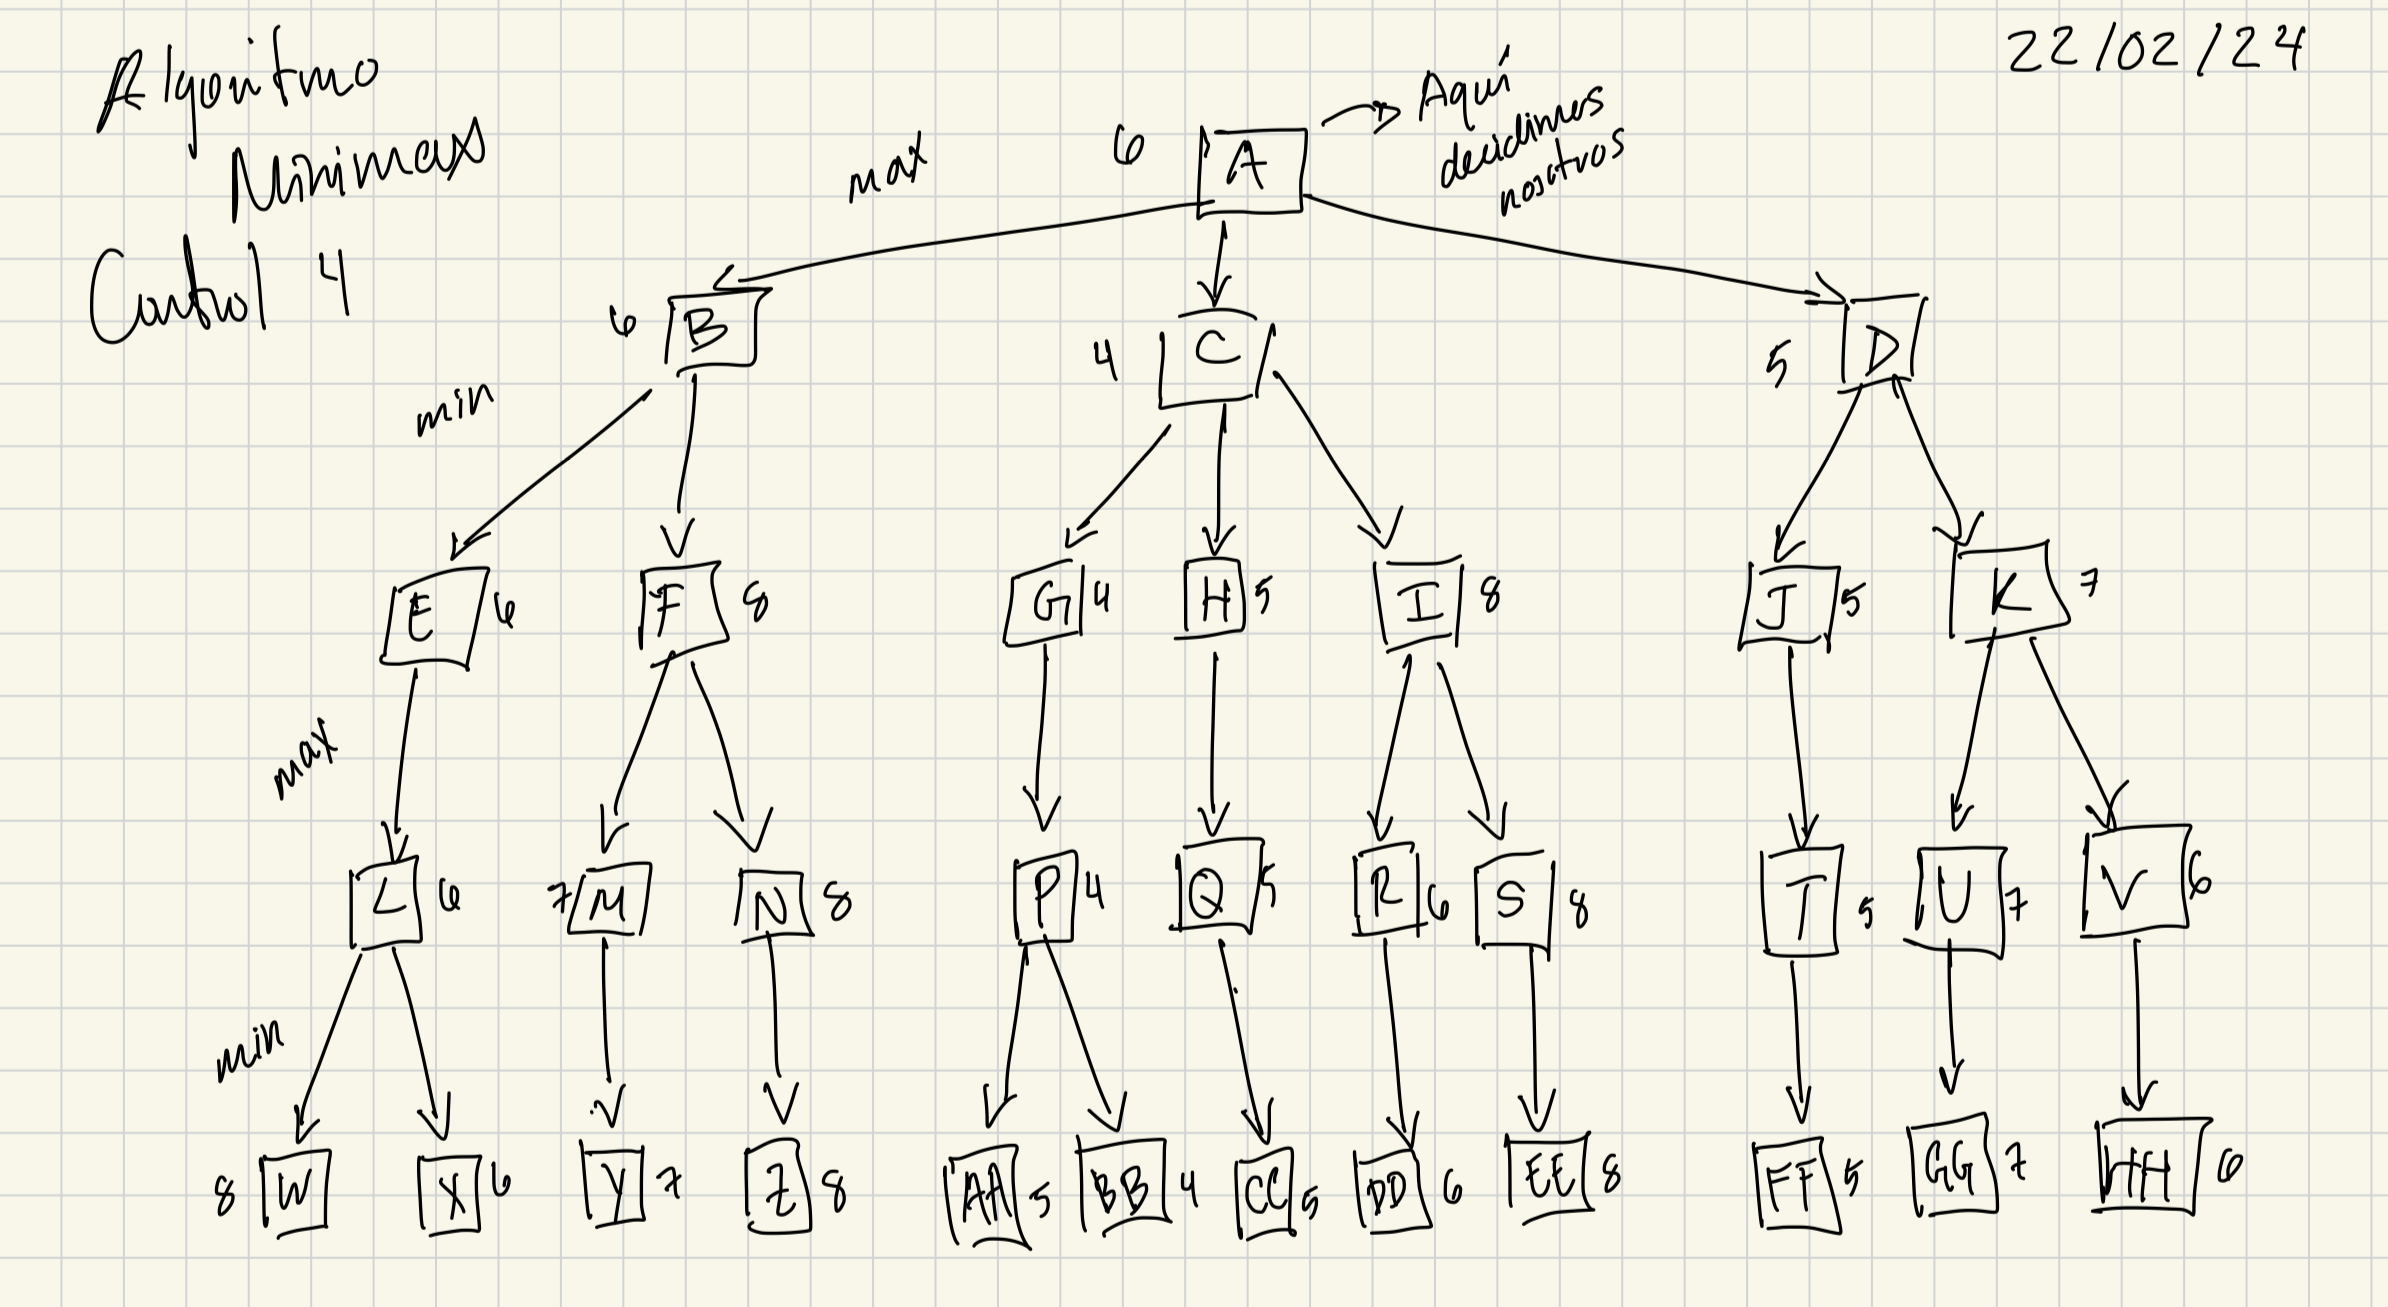 Algoritmo
Minimax
Control 4
22/02/24
max
6 A
Aquí
decidimos
nosotros
6 B
4 C
5 D
min
E 6
F 8
G 4
H 5
I 8
J 5
K 7
max
L 6
7 M
N 8
P 4
Q 5
R 6
S 8
T 5
U 7
V 6
min
8 W
X 6
Y 7
Z 8
AA 5
BB 4
CC 5
DD 6
EE 8
FF 5
GG 7
HH 6